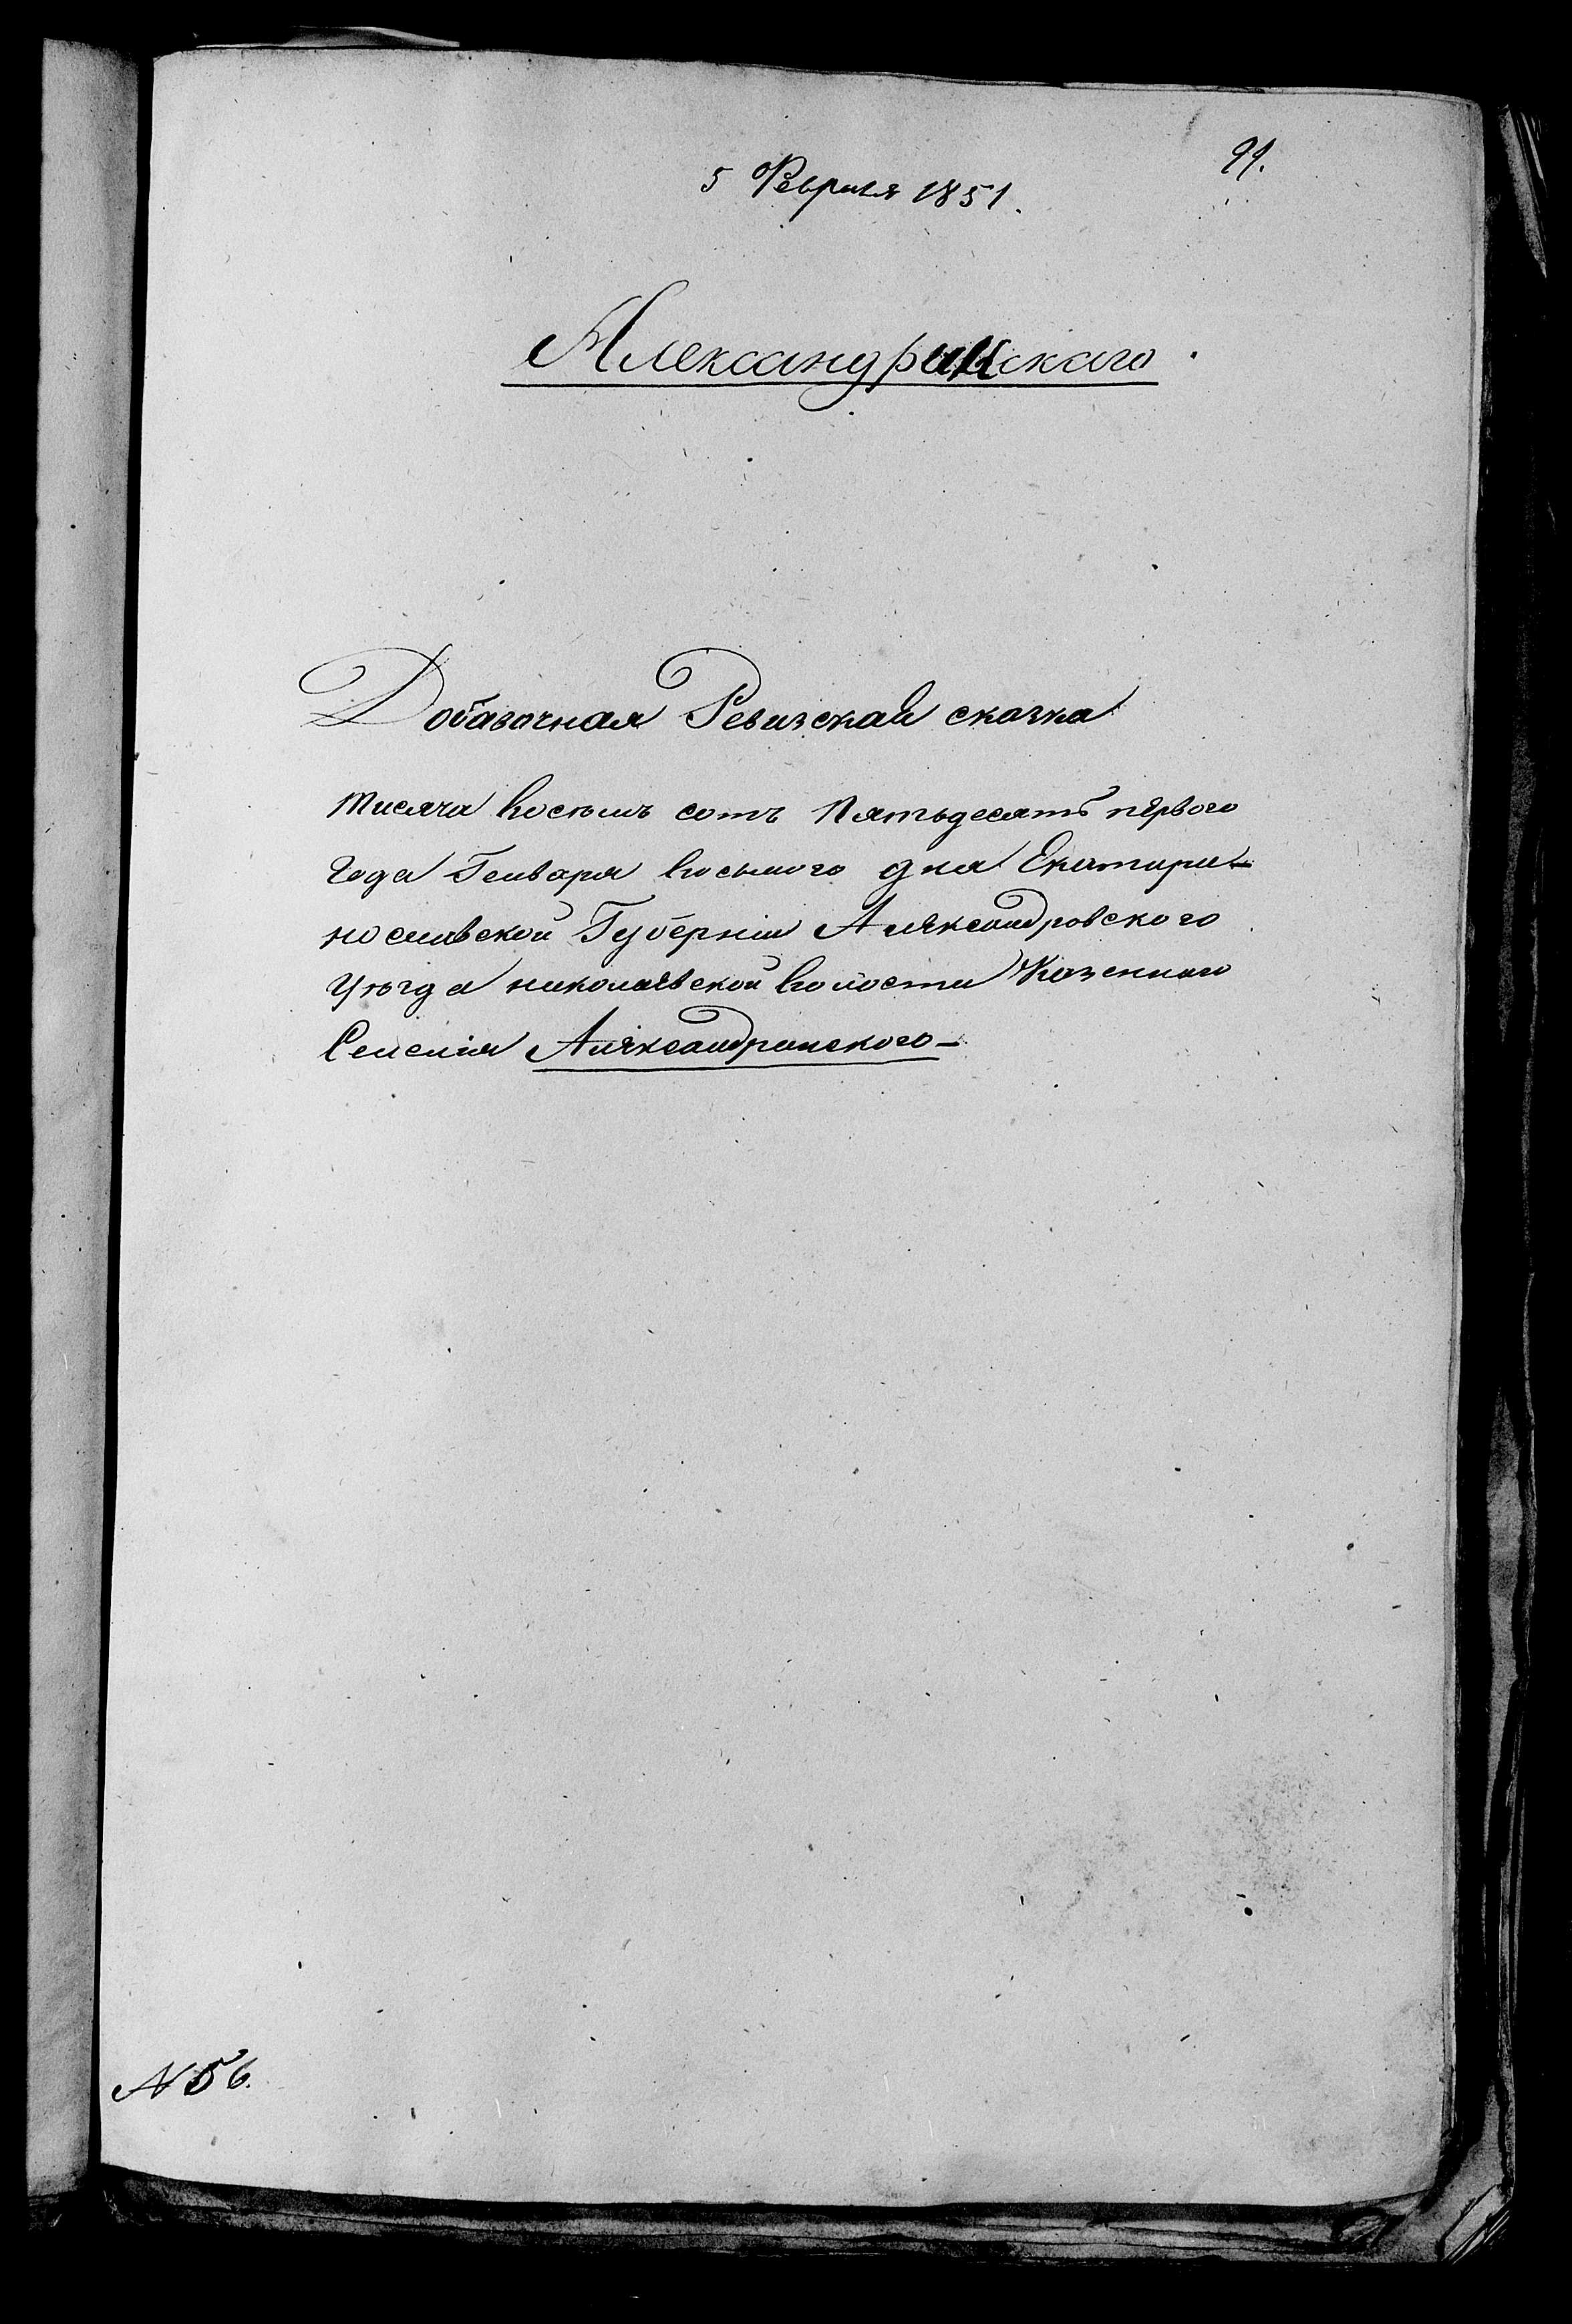 91.
5 Февраля 1851.
Александринскаго
Добавочная Ревизская сказка
тисяча восемъ сотъ Пятьдесятъ первого
Года Генваря восьмого дня Екатири-
нославской Губерніи Александровского
Уѣзда николаевской волости Казенного
Селенія Александринского-
N 56.